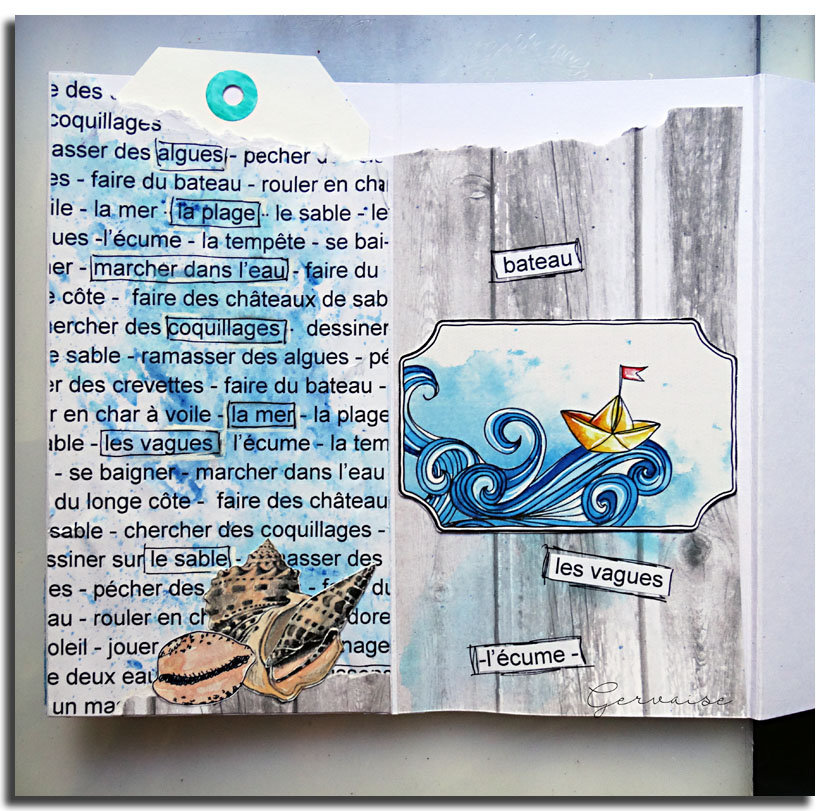 e des
coquillages
masser des algues - pecher
es - faire du bateau - rouler en cha
ile - la mer - la plage - le sable - le
ues -l'écume - la tempête - se bai-
ner - marcher dans l'eau - faire du
e côte - faire des châteaux de sab
hercher des coquillages - dessiner
e sable - ramasser des algues - pé
er des crevettes - faire du bateau -
r en char à voile - la mer - la plage
able - les vagues - l'écume - la tem
- se baigner - marcher dans l'eau
du longe côte - faire des château
sable - chercher des coquillages -
ssiner sur le sable masser des
es - pécher des du
eau - rouler en ch dore
oleil - jouer nage
e deux eau
un ma
bateau
les vagues
-l'écume -
Gervaise